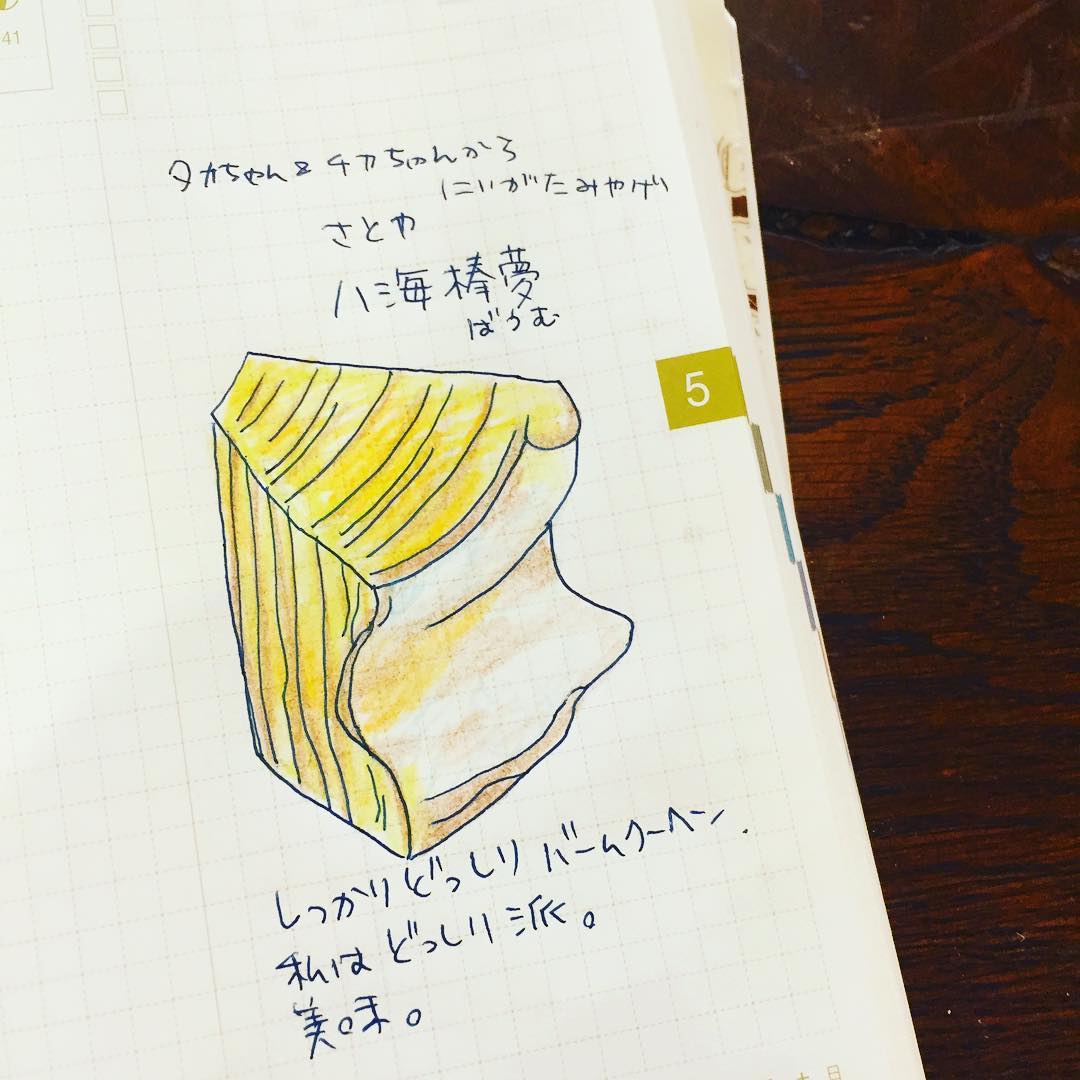 41
タカちゃん&チカちゃんから
にいがたみやげ
さとや
八海棒夢
ばうむ
5
しっかりどっしりバームクーヘン.
私はどっしり派。
美味。
土日